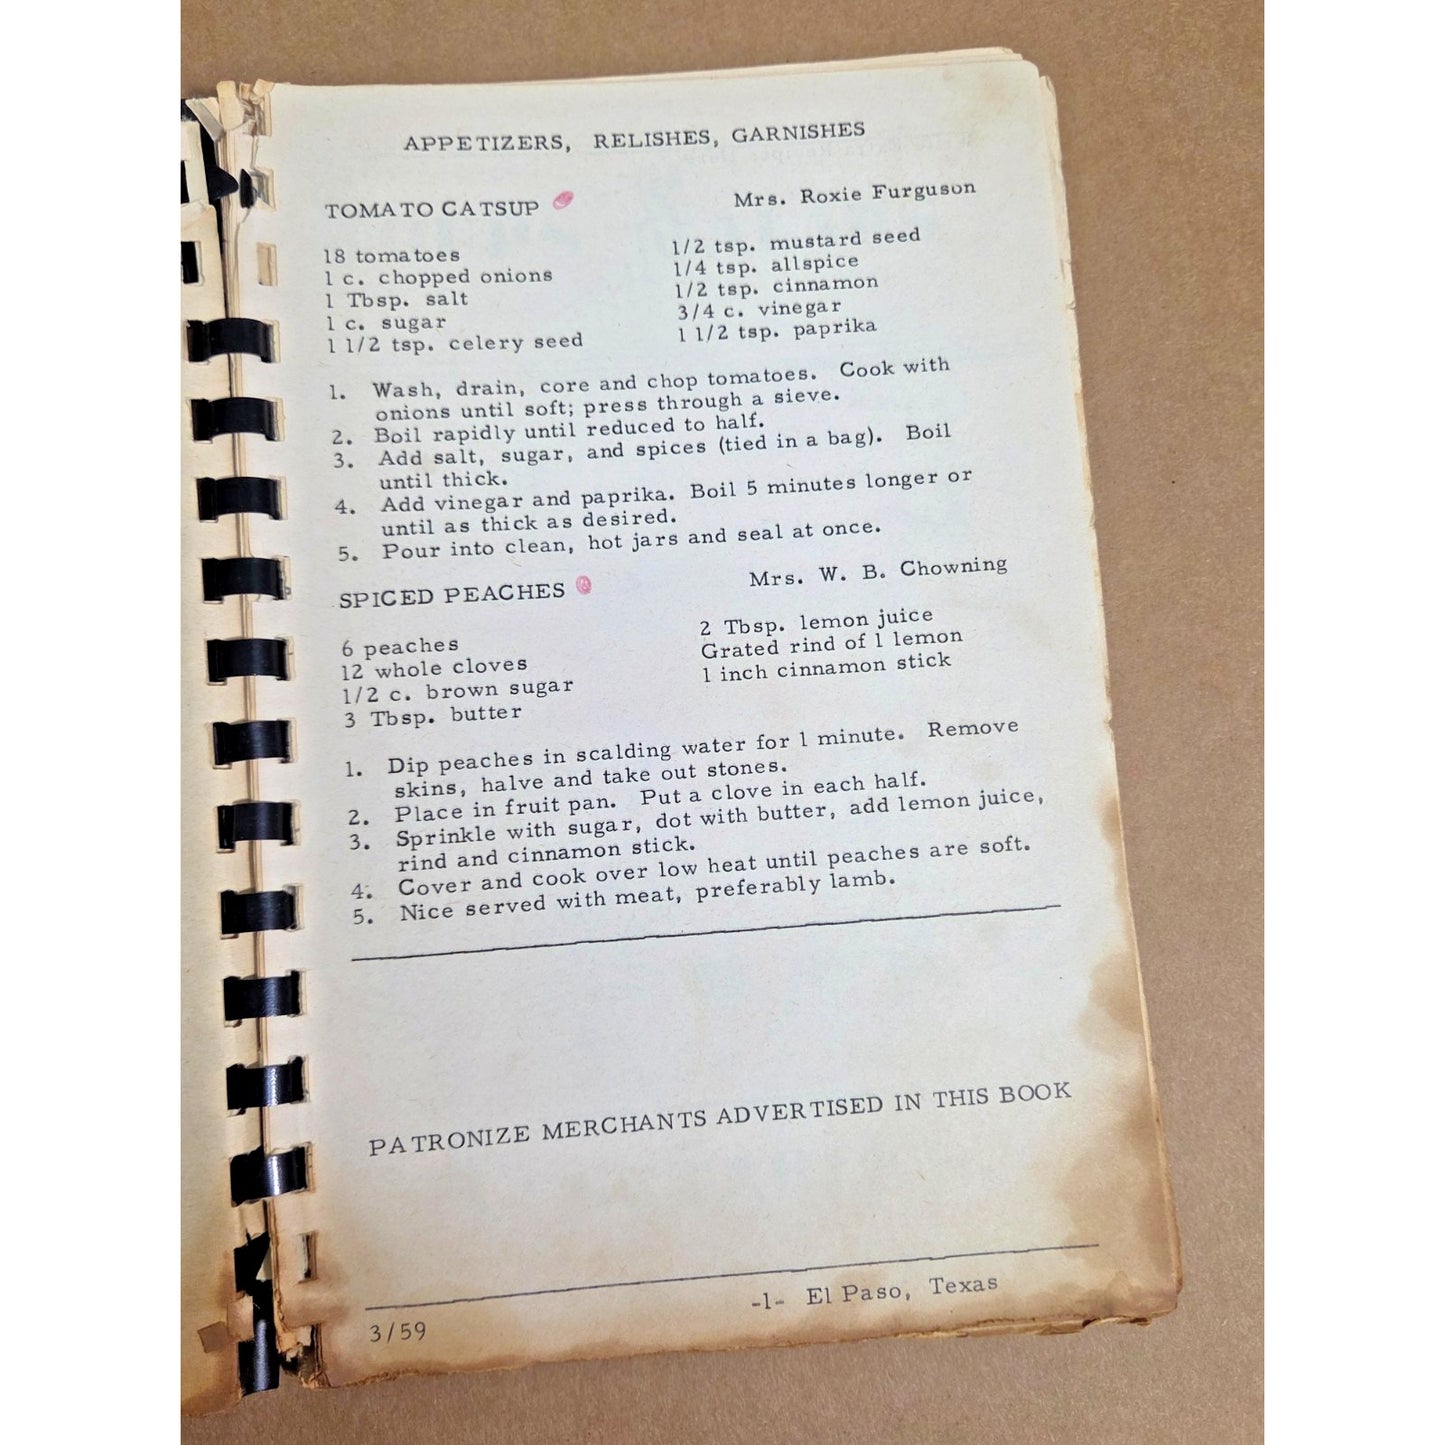 APPETIZERS, RELISHES, GARNISHES
TOMATO CATSUP Mrs. Roxie Furguson
18 tomatoes
1 c. chopped onions
1 Tbsp. salt
1 c. sugar
1 1/2 tsp. celery seed
1/2 tsp. mustard seed
1/4 tsp. allspice
1/2 tsp. cinnamon
3/4 c. vinegar
1 1/2 tsp. paprika
1. Wash, drain, core and chop tomatoes. Cook with
onions until soft; press through a sieve.
2. Boil rapidly until reduced to half.
3. Add salt, sugar, and spices (tied in a bag). Boil
until thick.
4. Add vinegar and paprika. Boil 5 minutes longer or
until as thick as desired.
5. Pour into clean, hot jars and seal at once.
SPICED PEACHES Mrs. W. B. Chowning
6 peaches
12 whole cloves
1/2 c. brown sugar
3 Tbsp. butter
2 Tbsp. lemon juice
Grated rind of 1 lemon
1 inch cinnamon stick
1. Dip peaches in scalding water for 1 minute. Remove
skins, halve and take out stones.
2. Place in fruit pan. Put a clove in each half.
3. Sprinkle with sugar, dot with butter, add lemon juice,
rind and cinnamon stick.
4. Cover and cook over low heat until peaches are soft.
5. Nice served with meat, preferably lamb.
PATRONIZE MERCHANTS ADVERTISED IN THIS BOOK
-1- El Paso, Texas
3/59